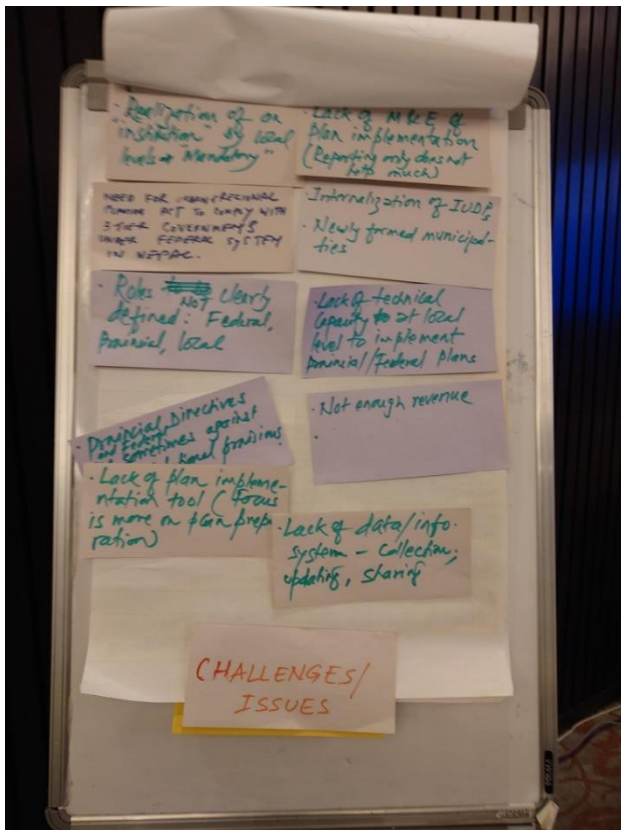 · Realization of an
"institution" by local
levels as "Mandatory"
· Lack of M&E of
plan implementation
(Reporting only does not
help much)
NEED FOR URBAN/REGIONAL
PLANNING ACT TO COMPLY WITH
3 TIER GOVERNMENTS
UNDER FEDERAL SYSTEM
IN NEPAL.
· Internalization of IUDPs
· Newly formed municipali-
ties
· Roles NOT clearly
defined: Federal,
Provincial, local
· Lack of technical
Capacity at local
level to implement
provincial/Federal plans
· Provincial Directives
and Federal
sometimes against
provisions
· Not enough revenue
· Lack of plan impleme-
ntation tool (Focus
is more on plan prepa
ration)
· Lack of data/info.
system - Collection,
updating, sharing
CHALLENGES/
ISSUES